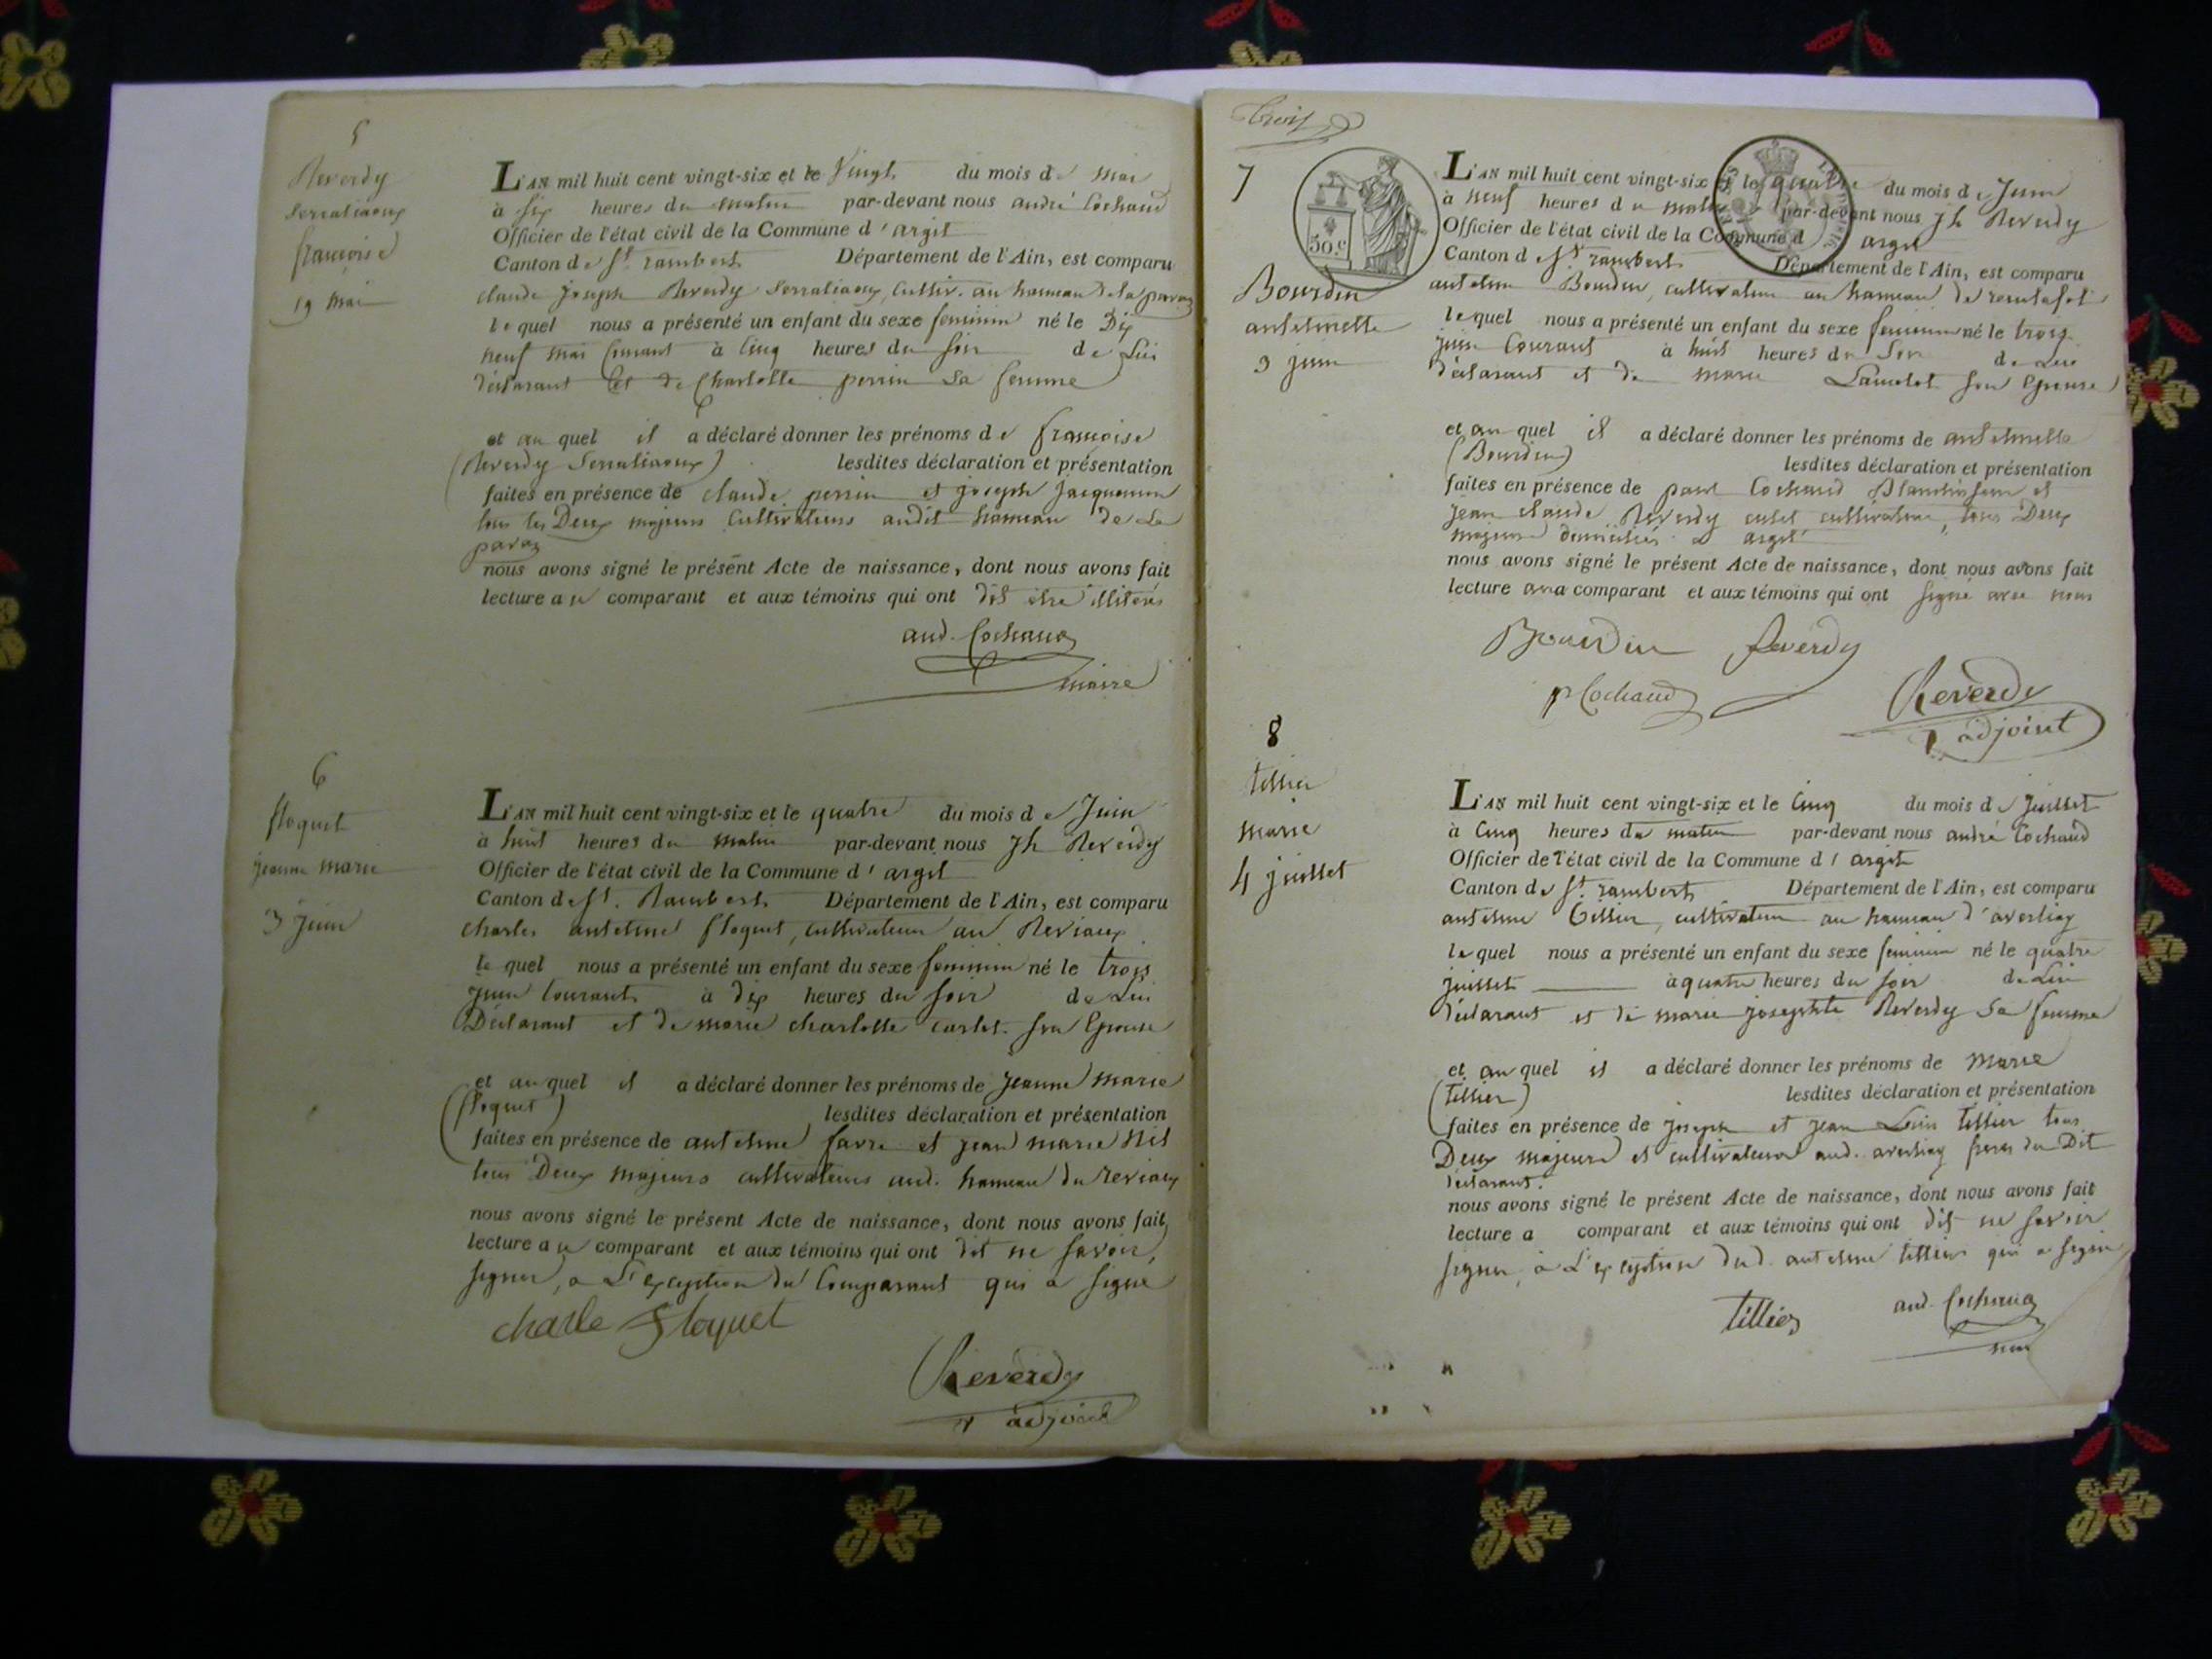 5
Reverdy
Serraliaoux
françoise
19 mai
L'AN mil huit cent vingt-six et le Vingt du mois de mai
à six heures du matin par-devant nous andré Cochaud
Officier de l'état civil de la Commune d'argit
Canton de St. rambert Département de l'Ain, est comparu
claude joseph Reverdy Serraliaoux, cultiv. au hameau de la
lequel nous a présenté un enfant du sexe feminin né le Dix
neuf mai Courant à Cinq heures du soir de Lui
déclarant et de Charlotte perrin sa femme
et auquel il a déclaré donner les prénoms de françoise
(Reverdy Serraliaoux) lesdites déclaration et présentation
faites en présence de claude perrin et joseph Jacquemin
tous les Deux majeurs Cultivateurs audit hameau de La
nous avons signé le présent Acte de naissance, dont nous avons fait
lecture au comparant et aux témoins qui ont dit être illiterés
and. Cochaud
maire
6
floquet
jeanne marie
3 juin
L'AN mil huit cent vingt-six et le quatre du mois de Juin
à huit heures du matin par-devant nous Jh Reverdy
Officier de l'état civil de la Commune d'argit
Canton de St. Rambert Département de l'Ain, est comparu
charles antelme floquet, cultivateur au Reviaux
lequel nous a présenté un enfant du sexe feminin né le trois
juin Courant à dix heures du soir de Lui
Déclarant et de marie charlotte carlet son Epouse
et auquel il a déclaré donner les prénoms de Jeanne marie
(floquet) lesdites déclaration et présentation
faites en présence de antelme favre et jean marie
tous Deux majeurs cultivateurs aud. hameau du reviaux
nous avons signé le présent Acte de naissance, dont nous avons fait
lecture au comparant et aux témoins qui ont dit ne savoir
signer, a L'exception du Comparant qui a signé
charle floquet
Reverdy
adjoint
trois
7
50 c
Bourdin
antelmette
3 juin
L'AN mil huit cent vingt-six et le quatre du mois de Juin
à neuf heures du matin par-devant nous Jh Reverdy
Officier de l'état civil de la Commune d argit
Canton de St rambert Département de l'Ain, est comparu
antelme Bourdin, cultivateur au hameau de
lequel nous a présenté un enfant du sexe feminin né le trois
juin Courant à huit heures du Soir de Lui
déclarant et de marie son Epouse
et auquel il a déclaré donner les prénoms de antelmette
(Bourdin) lesdites déclaration et présentation
faites en présence de paul Cochaud et
jean claude Reverdy cultivateurs, tous Deux
majeurs domiciliés a argit
nous avons signé le présent Acte de naissance, dont nous avons fait
lecture au comparant et aux témoins qui ont signé avec nous
Bourdin Reverdy
p Cochaud
Reverdy
adjoint
8
tillier
marie
4 juillet
L'AN mil huit cent vingt-six et le Cinq du mois de Juillet
à Cinq heures du matin par-devant nous andré Cochaud
Officier de l'état civil de la Commune d'argit
Canton de St. rambert Département de l'Ain, est comparu
antelme tillier, cultivateur au hameau d'averliaz
lequel nous a présenté un enfant du sexe feminin né le quatre
juillet à quatre heures du soir de Lui
déclarant et de marie josephte Reverdy sa femme
et auquel il a déclaré donner les prénoms de Marie
(tillier) lesdites déclaration et présentation
faites en présence de joseph et jean Louis tillier tous
Deux majeurs et cultivateurs aud. averliaz freres du Dit
déclarant.
nous avons signé le présent Acte de naissance, dont nous avons fait
lecture a comparant et aux témoins qui ont dit ne savoir
signer, a L'exception dud. antelme tillier qui a signé
tillier
and. Cochaud